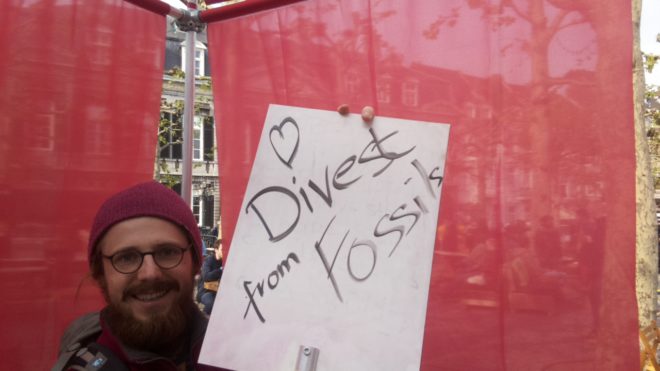 Divest
from Fossils